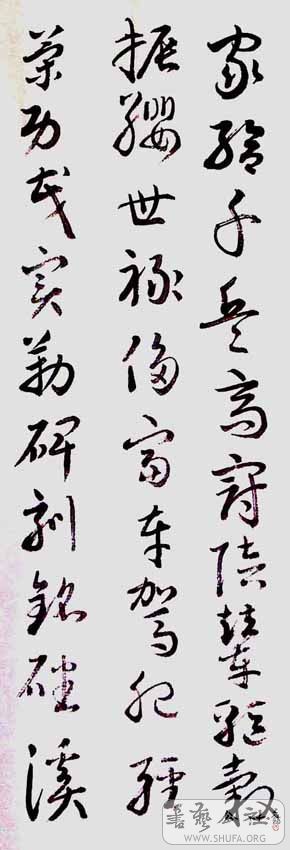 家給千兵高冠陪輦驅轂
振纓世祿侈富車駕肥輕
策功茂實勒碑刻銘磻溪
書藝公社
WWW.SHUFA.ORG